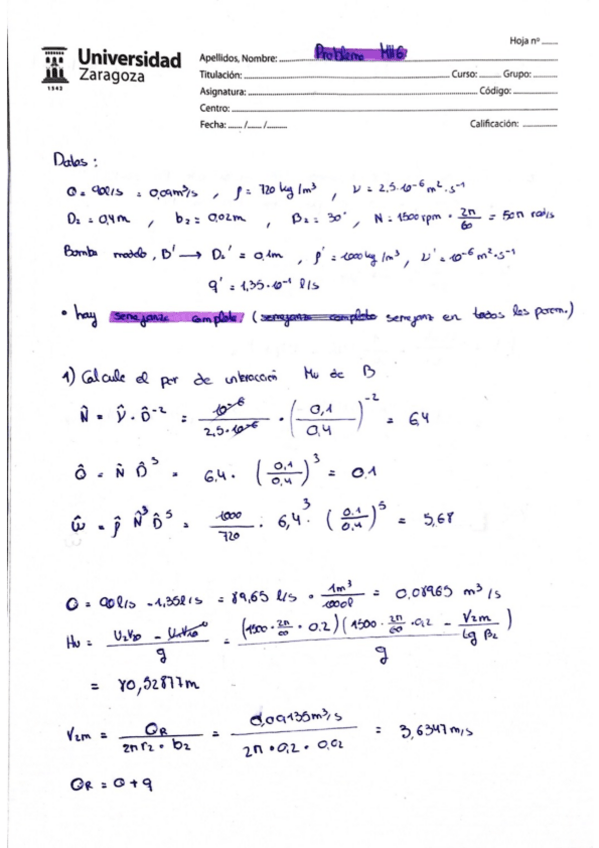 Hoja nº
Universidad
Zaragoza
1542
Apellidos, Nombre: Problema MH6
Titulación: Curso: Grupo:
Asignatura: Código:
Centro:
Fecha: / / Calificación:
Datos:
Q = 90 l/s = 0,09 m³/s , ρ = 720 kg/m³ , ν = 2,5·10⁻⁶ m²·s⁻¹
D₂ = 0,4m , b₂ = 0,02m , B₂ = 30° , N = 1500 rpm · 2π/60 = 50π rad/s
Bomba modelo, B' → D₂' = 0,1m , ρ' = 1000 kg/m³ , ν' = 10⁻⁶ m²·s⁻¹
q' = 1,35·10⁻¹ l/s
• hay semejanza completa (semejanza completa semejanz en todos los parám.)
1) Calcule el par de interacción Mu de B
N̂ = ν̂ · D̂⁻² = 10⁻⁶/2,5·10⁻⁶ · (0,1/0,4)⁻² = 6,4
Q̂ = N̂ D̂³ = 6,4 · (0,1/0,4)³ = 0,1
Ŵ = ρ̂ N̂³ D̂⁵ = 1000/720 · 6,4³ · (0,1/0,4)⁵ = 5,68
Q = 90 l/s - 1,35 l/s = 89,65 l/s · 1m³/1000l = 0,08965 m³/s
Hu = (U₂V₂θ - U₁V₁θ)/g = (1500 · 2π/60 · 0,2)(1500 · 2π/60 · 0,2 - V₂m/tg B₂)/g
= 80,52877m
V₂m = QR/2πr₂ · b₂ = 0,09135m³/s / 2π · 0,2 · 0,02 = 3,6347 m/s
QR = Q + q